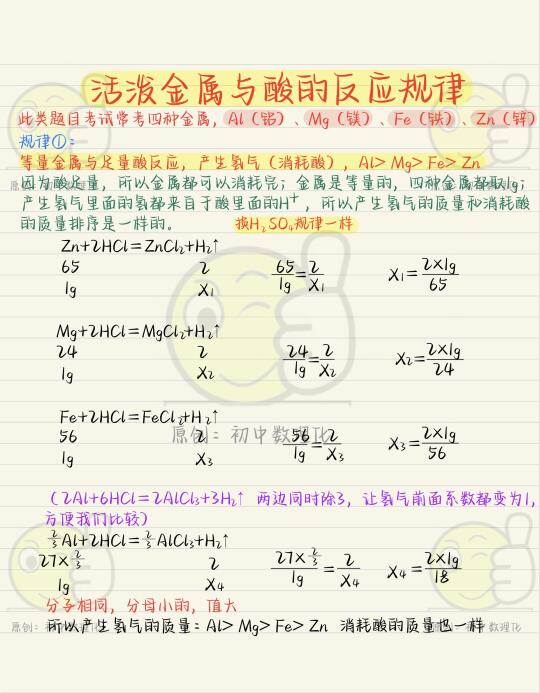 活泼金属与酸的反应规律
此类题目考试常考四种金属，Al（铝）、Mg（镁）、Fe（铁）、Zn（锌）
规律①：
等量金属与足量酸反应，产生氢气（消耗酸），Al＞Mg＞Fe＞Zn
因为酸足量，所以金属都可以消耗完；金属是等量的，四种金属都取1g；
产生氢气里面的氢都来自于酸里面的H⁺，所以产生氢气的质量和消耗酸
的质量排序是一样的。 换H₂SO₄规律一样
Zn+2HCl=ZnCl₂+H₂↑
65 2 65/1g=2/X₁ X₁=2×1g/65
1g X₁
Mg+2HCl=MgCl₂+H₂↑
24 2 24/1g=2/X₂ X₂=2×1g/24
1g X₂
Fe+2HCl=FeCl₂+H₂↑
56 2 56/1g=2/X₃ X₃=2×1g/56
原创：初中数理化
1g X₃
（2Al+6HCl=2AlCl₃+3H₂↑ 两边同时除3，让氢气前面系数都变为1，
方便我们比较）
2/3Al+2HCl=2/3AlCl₃+H₂↑
27×2/3 2 27×2/3/1g=2/X₄ X₄=2×1g/18
1g X₄
分子相同，分母小的，值大
所以产生氢气的质量：Al＞Mg＞Fe＞Zn 消耗酸的质量也一样